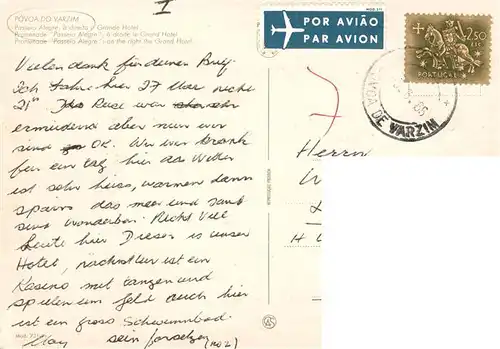 I
PÓVOA DO VARZIM
Passeio Alegre, à direita o Grande Hotel
Promenade "Passeio Alegre", à droite le Grand Hotel
Promenade "Passeio Alegre" - on the right the Grand Hotel
POR AVIÃO
PAR AVION
2$50
PORTUGAL
PÓVOA DE VARZIM
Vielen dank für deinen Brief.
Ich fahre hier 27 Uhr nicht
21" Reise war sehr
ermüdend aber nun wir
sind OK. Wir war krank
für ein tag, hier das Wetter
ist sehr heiss, warmen dann
spain das meer und sand
sind wonderbar. Nicht viel
Leute hier Dieses is unser
Hotel, nächstür ist ein
Kasino mit tanzen und
spielen um geld auch hier
ist ein gross Schwimmbad.
sein forsetzen (no 2)
Herrn
H